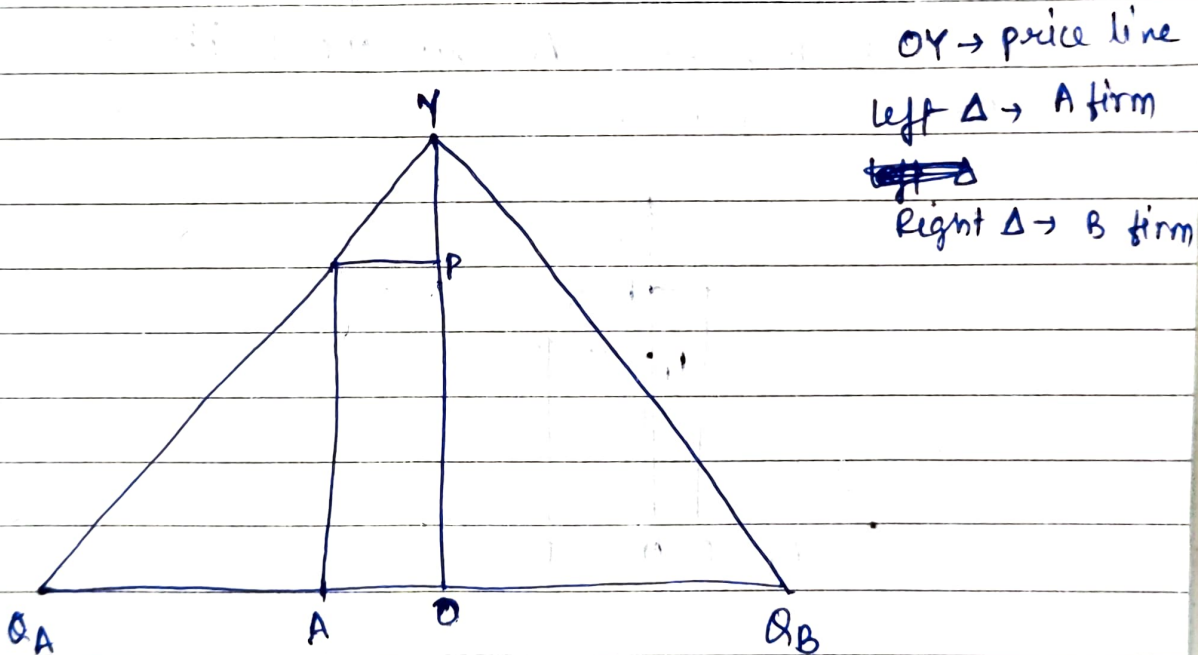 OY → price line
Left Δ → A firm
Right Δ → B firm
Y
P
Q_A A O Q_B